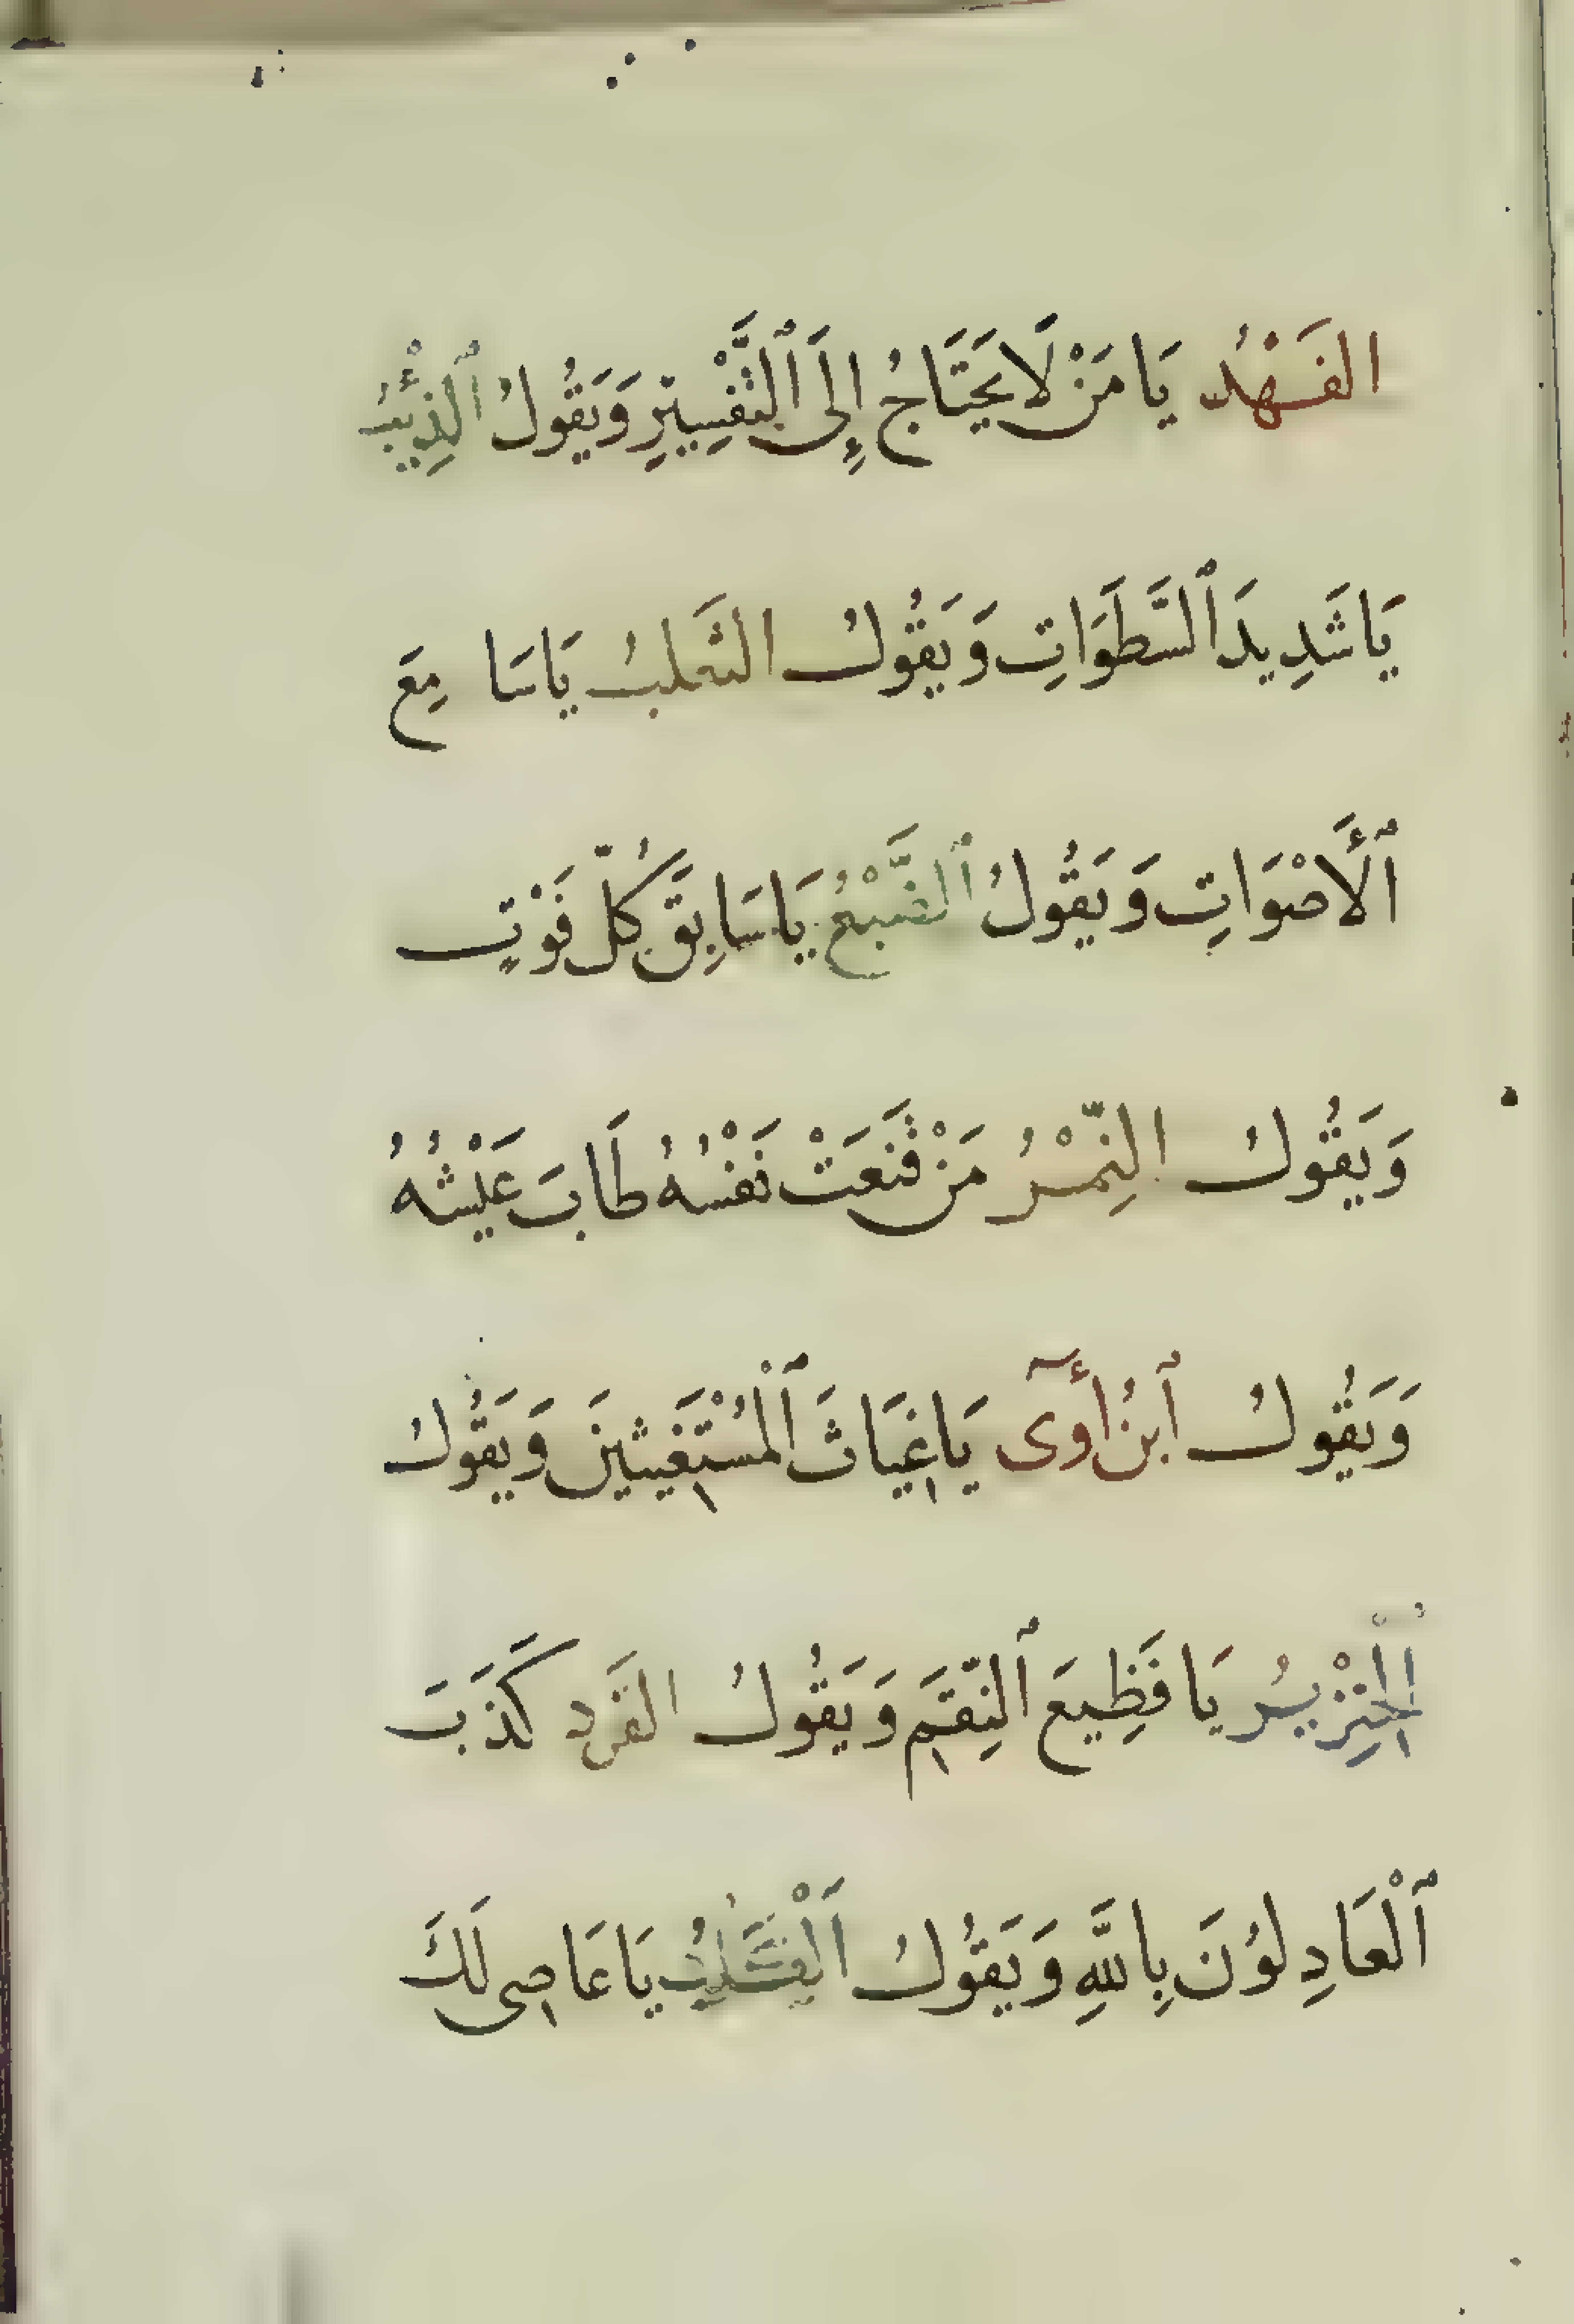 الفَهْدُ يَا مَنْ لَا يَحْتَاجُ إِلَى ٱلتَّفْسِيْرِ وَيَقُولُ ٱلذِئْيبُ
يَا شَدِيدَ ٱلسَّطَوَاتِ وَيَقُولُ الثَعلبُ يَا سَا مِعَ
ٱلْأَصْوَاتِ وَيَقُولُ ٱلضَّبْعُ يَا سَابِقَ كُلِّ فَوْتٍ
وَيَقُولُ النِّمْرُ مَنْ قَنَعَتْ نَفْسُهُ طَابَ عَيْشُهُ
وَيَقُولُ ٱبنُ أَوٓى يَا غِيَاثَ ٱلْمُسْتَغِيثِينَ وَيَقُولُ
ٱلْخِنْزِيرُ يَا فَظِيعَ ٱلنِّقَمِ وَيَقُولُ القَرد كَذَبَ
ٱلْعَادِلُوْنَ بِاللَّهِ وَيَقُولُ يَا عَاصِى لَكَ